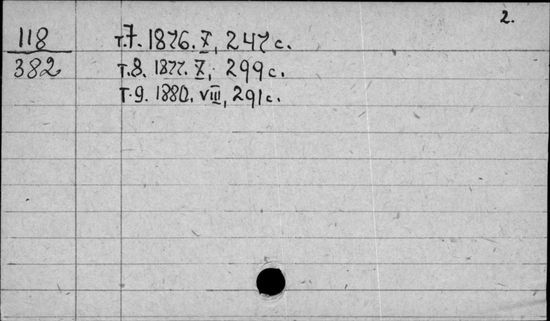 2.
118
382
т.7. 1876. X, 247 с.
т.8. 1877. X, 299 с.
т.9. 1880. VIII, 291 с.